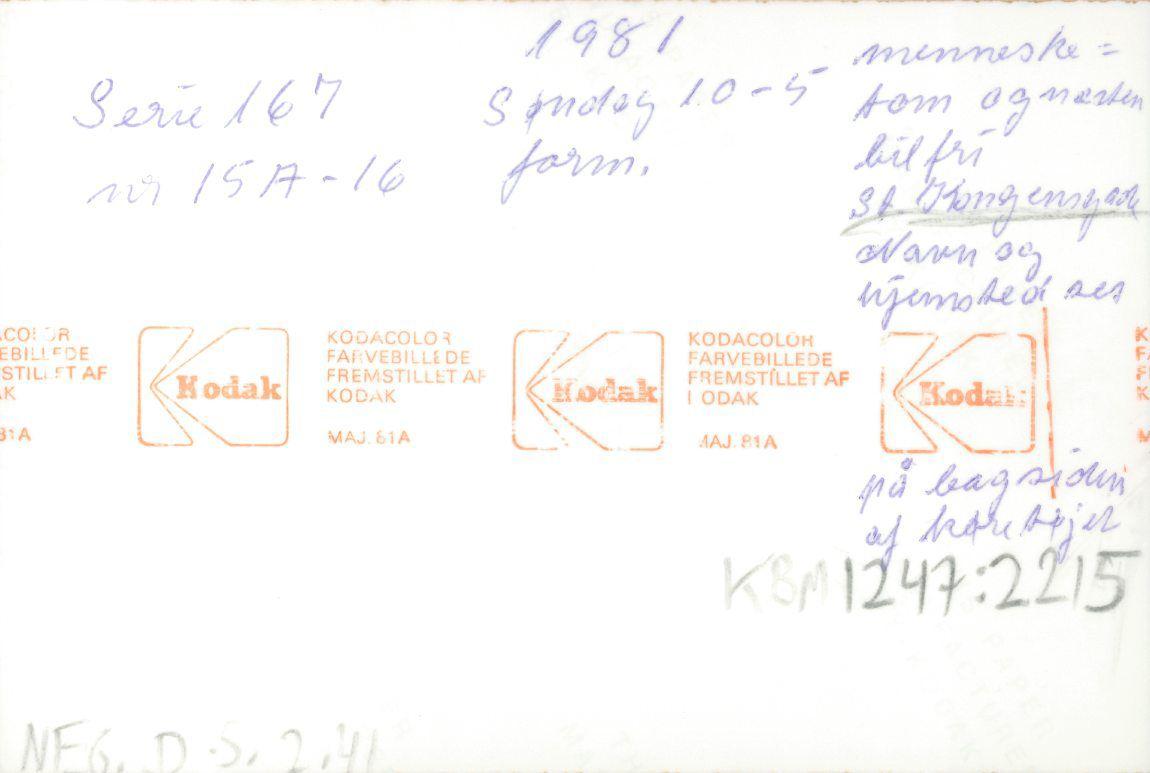 Serie 167
nr 15A-16
1981
Søndag 10-5
form.
menneske=
tom og næsten
bilfri
St. Kongensgade
Navn og
hjemsted ses
på bagsiden
af køretøjet
ACOLOR
EBILLEDE
STILLET AF
AK
81A
Kodak
KODACOLOR
FARVEBILLEDE
FREMSTILLET AF
KODAK
MAJ. 81A
Kodak
KODACOLOR
FARVEBILLEDE
FREMSTILLET AF
KODAK
MAJ. 81A
Kodak
KBM 1247:2215
NEG. D.S. 2.41